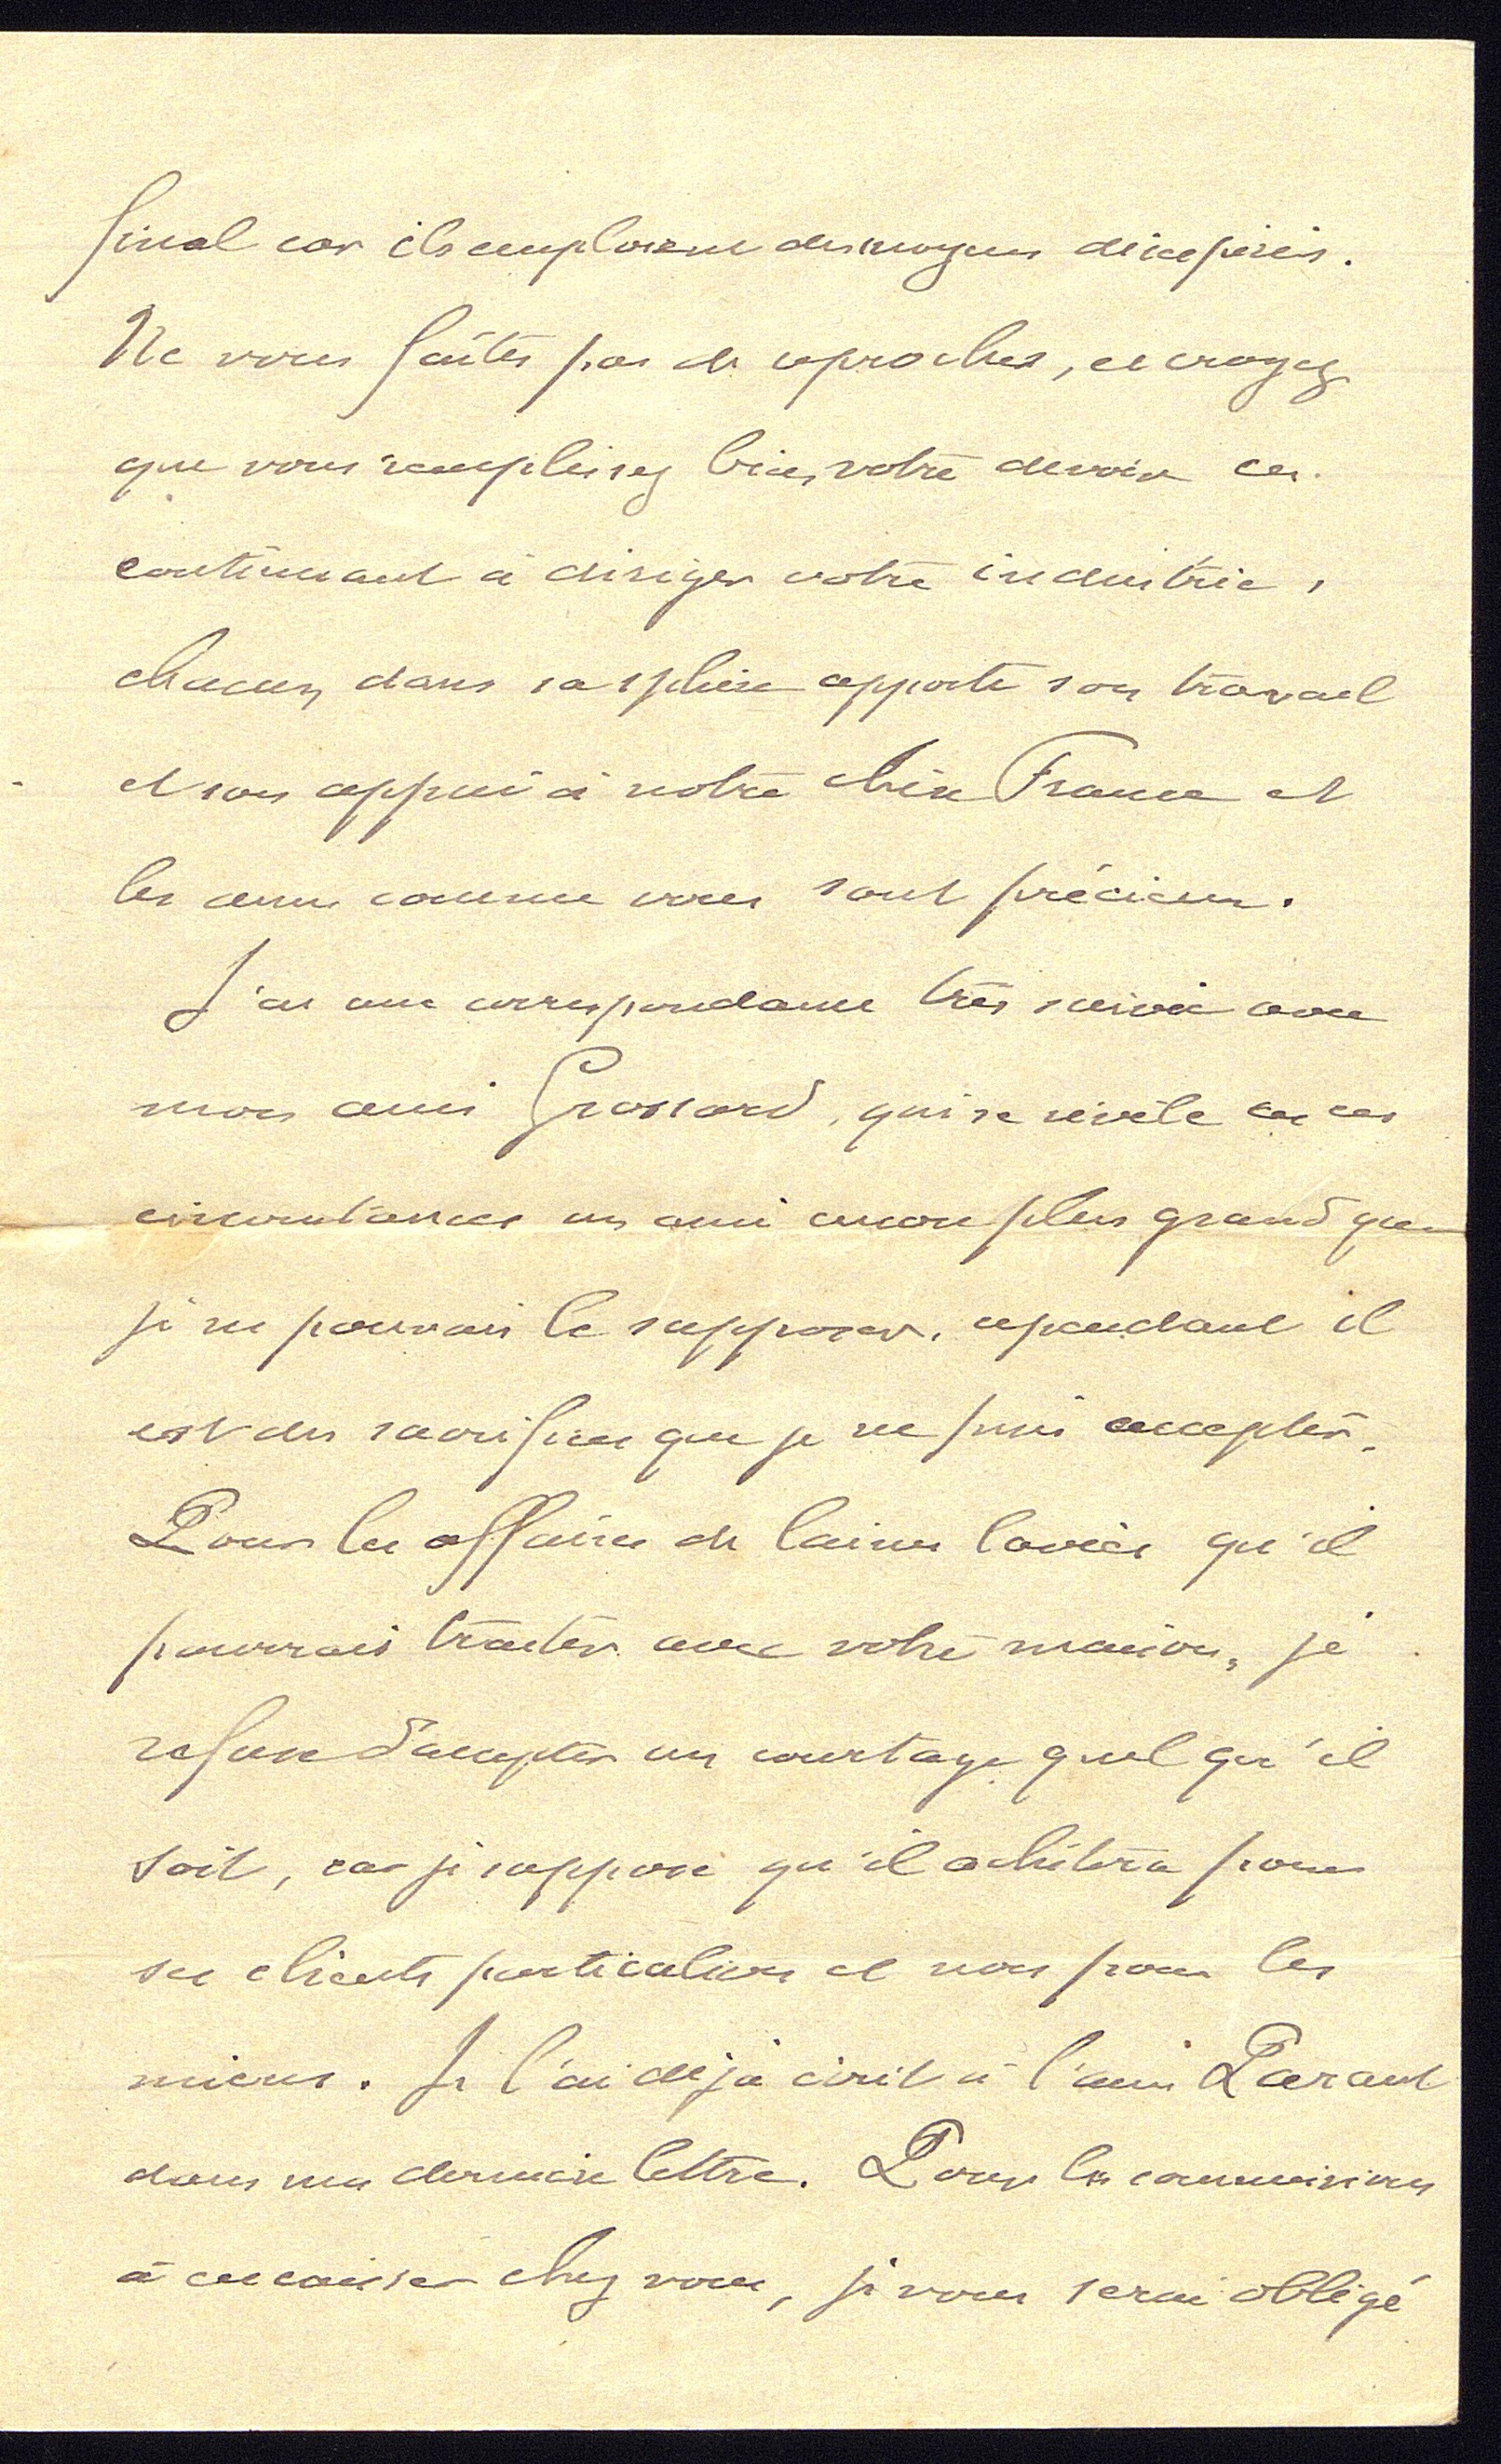 final car ils emploient des moyens désespérés.
Ne vous faîtes pas de reproches, et croyez
que vous remplissez bien votre devoir en
continuant à diriger votre industrie,
chacun dans sa sphère apporte son travail
et son appui à notre chère France et
les amis comme vous sont précieux.
J'ai une correspondance très suivie avec
mon ami Grossard, qui se révèle en ces
circonstances un ami encore plus grand que
je ne pouvais le supposer, cependant il
est des sacrifices que je ne puis accepter.
Pour les affaires de laines lavées qu'il
pourrais traiter avec votre maison, je
refuse d'accepter un courtage quel qu'il
soit, car je suppose qu'il achètera pour
ses clients particuliers et non pour les
miens. Je l'ai déjà écrit à l'ami Parant
dans ma dernière lettre. Pour les commissions
à encaisser chez vous, je vous serai obligé